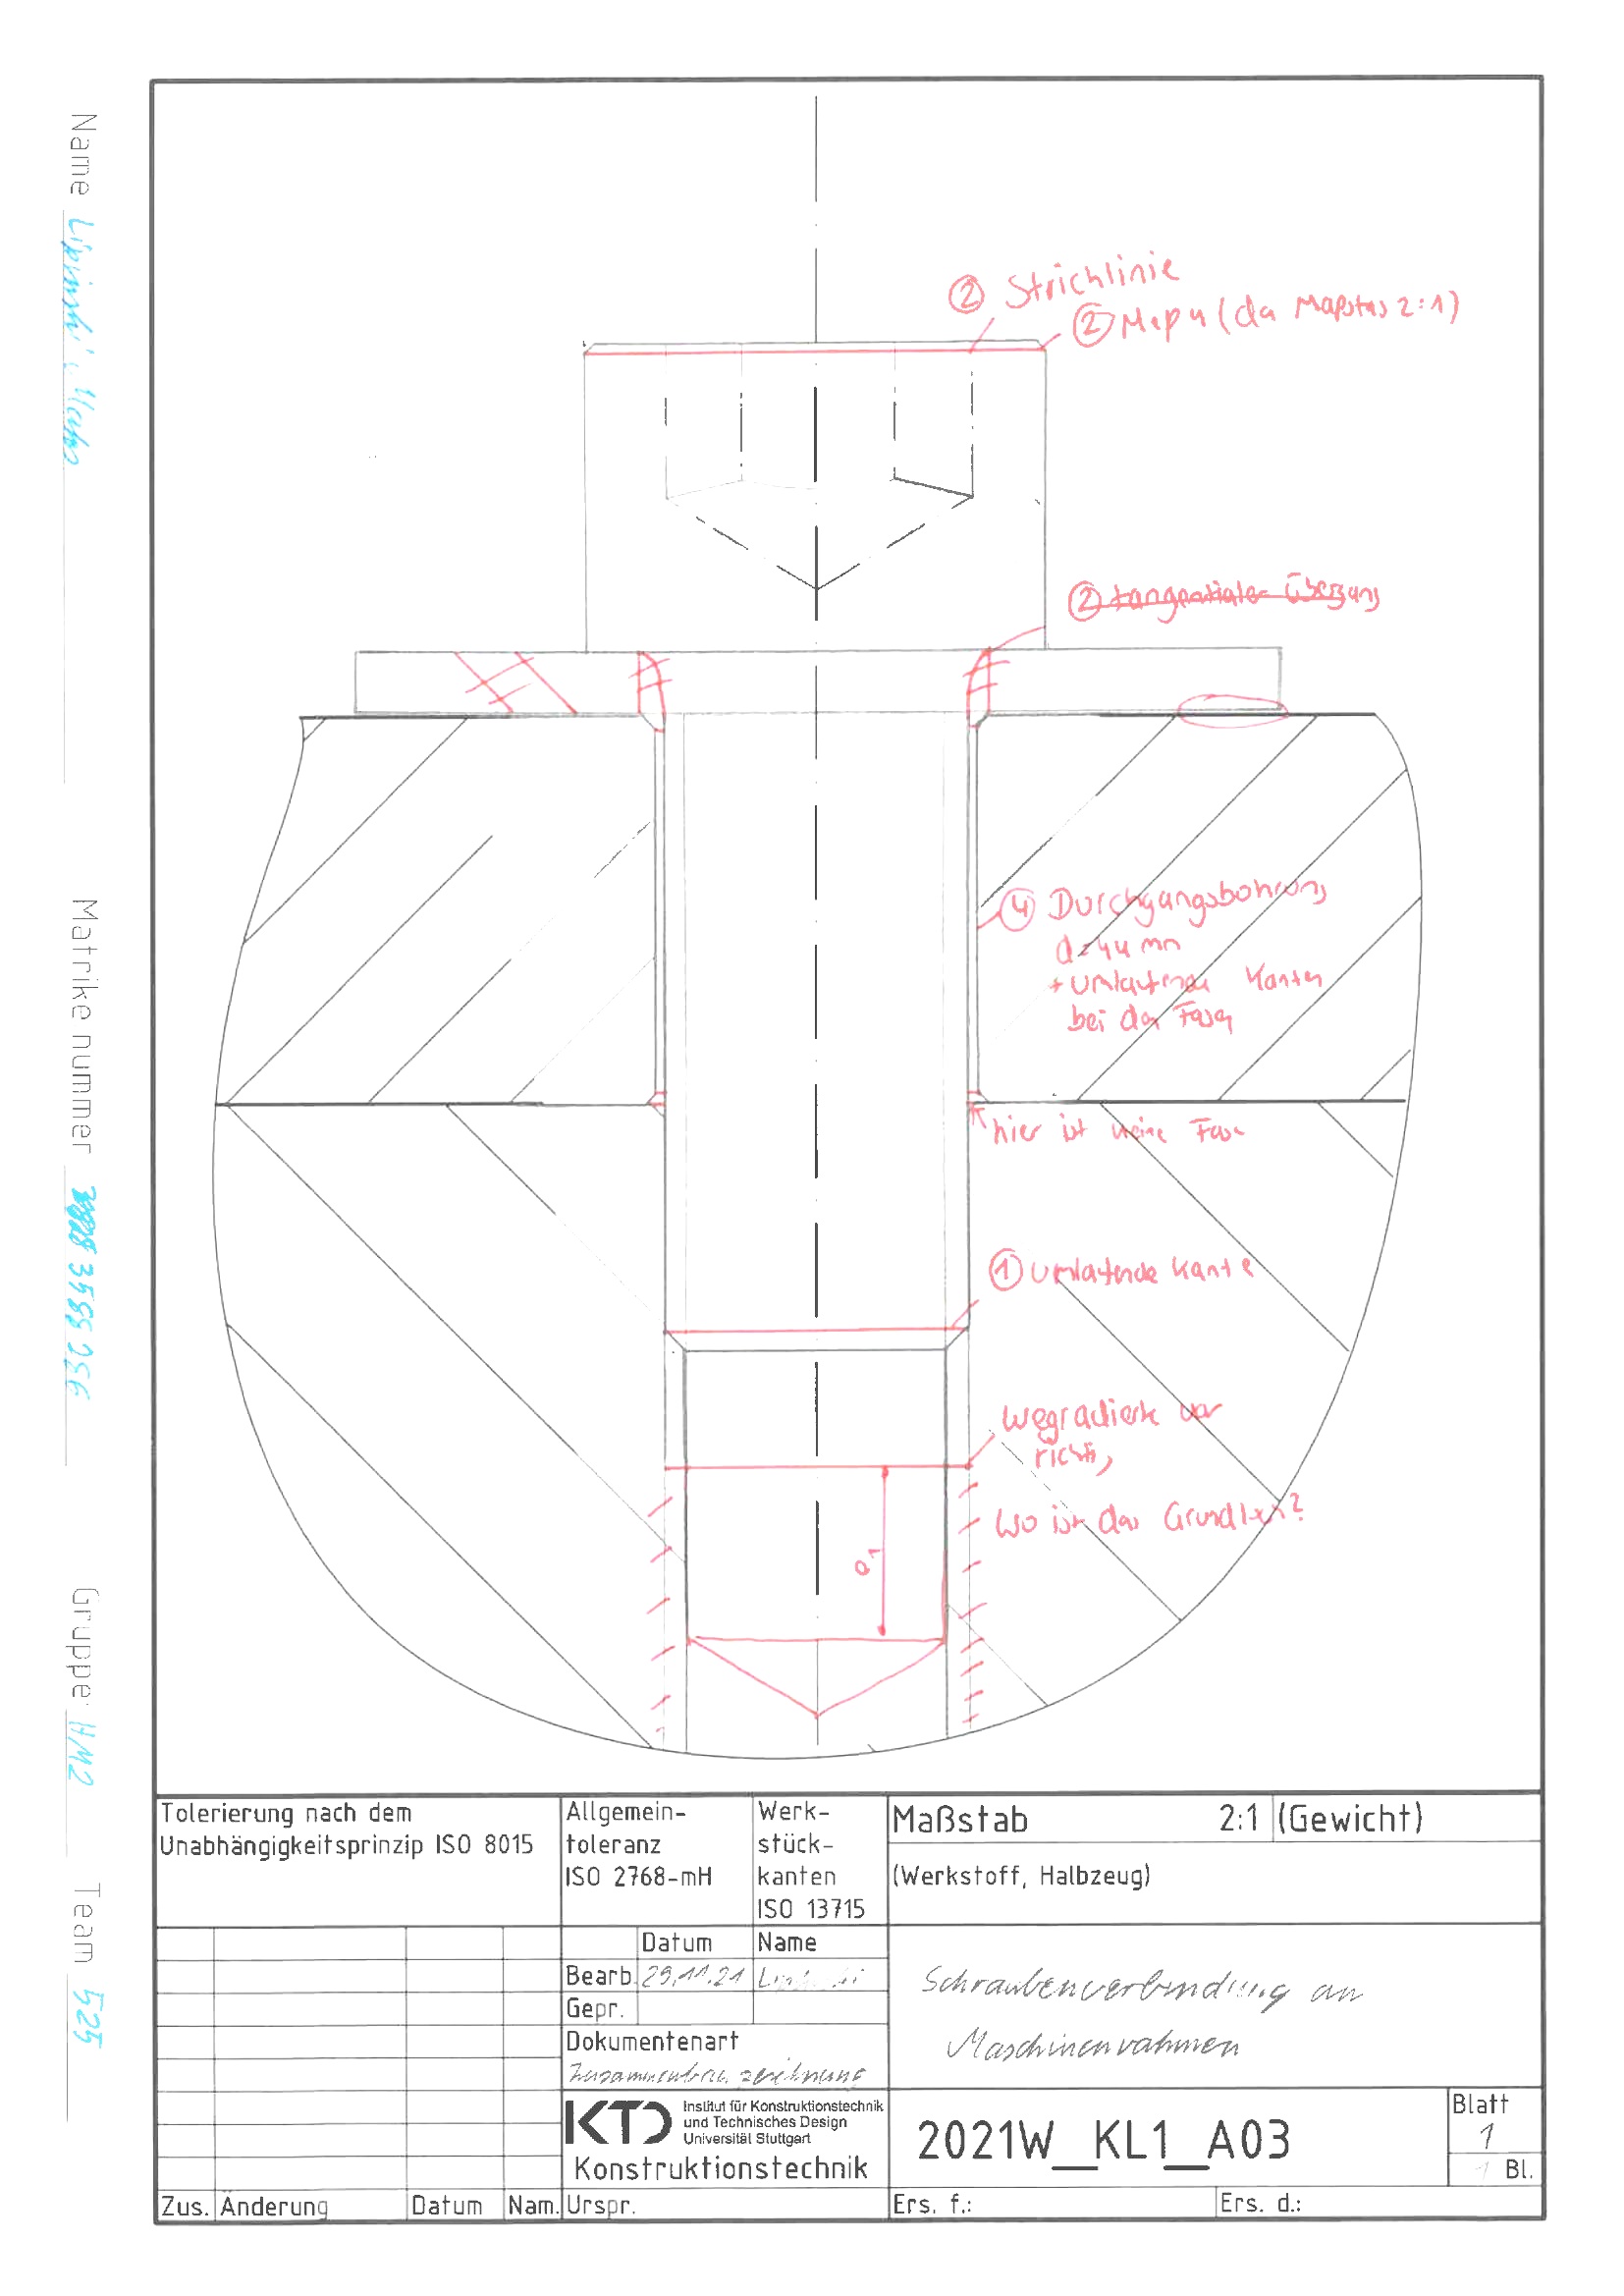 Name
Matrikelnummer 3589256
Gruppe HM2
Team 525
② Strichlinie
② Maß 4 (da Maßstab 2:1)
② tangentialer Übergang
④ Durchgangsbohrung
d=44 mm
+ umlaufende Kanten
bei der Fase
hier ist keine Fase
① umlaufende Kante
wegradierte war
richtig
Wo ist das Grundloch?
e1
Tolerierung nach dem
Unabhängigkeitsprinzip ISO 8015
Allgemein-
toleranz
ISO 2768-mH
Werk-
stück-
kanten
ISO 13715
Maßstab 2:1 (Gewicht)
(Werkstoff, Halbzeug)
Datum Name
Bearb. 29.11.21
Gepr.
Dokumentenart
Zusammenbauzeichnung
Schraubenverbindung an
Maschinenrahmen
KTD
Institut für Konstruktionstechnik
und Technisches Design
Universität Stuttgart
Konstruktionstechnik
2021W_KL1_A03
Blatt
1
1 Bl.
Zus. Änderung Datum Nam. Urspr. Ers. f.: Ers. d.: